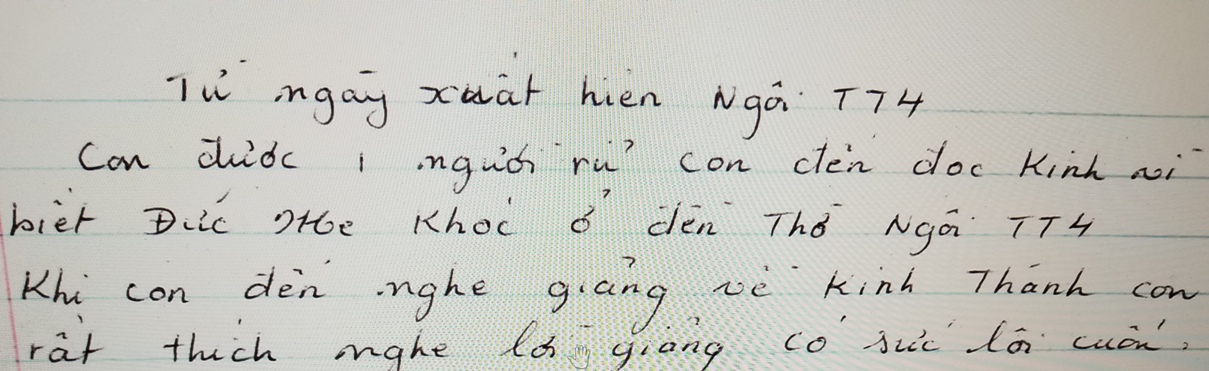 Từ ngày xuất hiện Ngôi TT4
Con được 1 người rủ con đến đọc Kinh vì
biết Đức Mẹ Khóc ở đền Thờ Ngôi TT4
Khi con đến nghe giảng về Kinh Thánh con
rất thích nghe lời giảng có sức lôi cuốn.